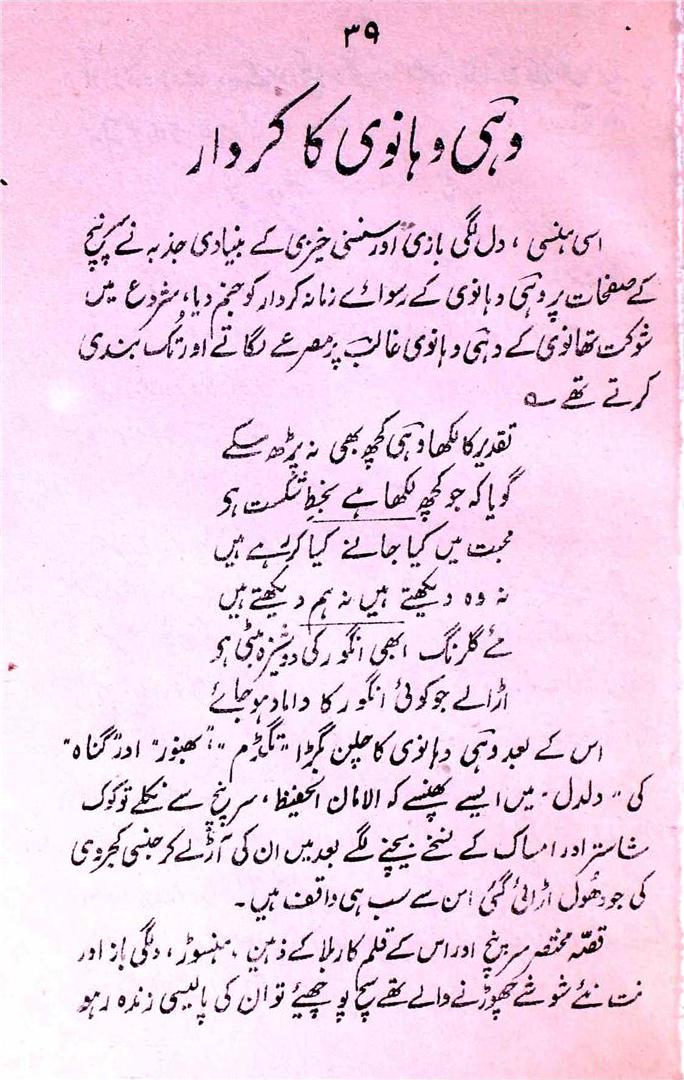 ۳۹
وہی وہانوی کا کردار
اسی ہنسی، دل لگی بازی اور سنسنی خیزی کے بنیادی جذبہ نے سرپنچ
کے صفحات پر وہی وہانوی کے رسوائے زمانہ کردار کو جنم دیا، شروع میں
شوکت تھانوی کے وہی وہانوی غالب پر مصرعے لگاتے اور تک بندی
کرتے تھے ؎
تقدیر کا لکھا وہی کچھ بھی نہ پڑھ سکے
گویا کہ جو کچھ لکھا ہے بخطِ شکست ہو
محبت میں کیا جانے کیا کر رہے ہیں
نہ وہ دیکھتے ہیں نہ ہم دیکھتے ہیں
مئے گلرنگ ابھی انگور کی دوشیزہ بیٹی ہو
اڑالے جو کوئی انگور کا داماد ہوجائے
اس کے بعد وہی وہانوی کا چلن بگڑا "تگڑم"، "بھنور" اور "گناہ"
کی "دلدل" میں ایسے پھنسے کہ الامان الحفیظ، سرپنچ سے نکلے تو کوک
شاستر اور امساک کے نسخے بیچنے لگے بعد میں ان کی آڑ لے کر جنسی کجروی
کی جو دھول اڑائی گئی اس سے سب ہی واقف ہیں۔
قصہ مختصر سرپنچ اور اس کے قلم کار بلا کے ذہین، ہنسوڑ، دلگی باز اور
نت نئے شوشے چھوڑنے والے تھے سچ پوچھیئے تو ان کی پالیسی زندہ رہو